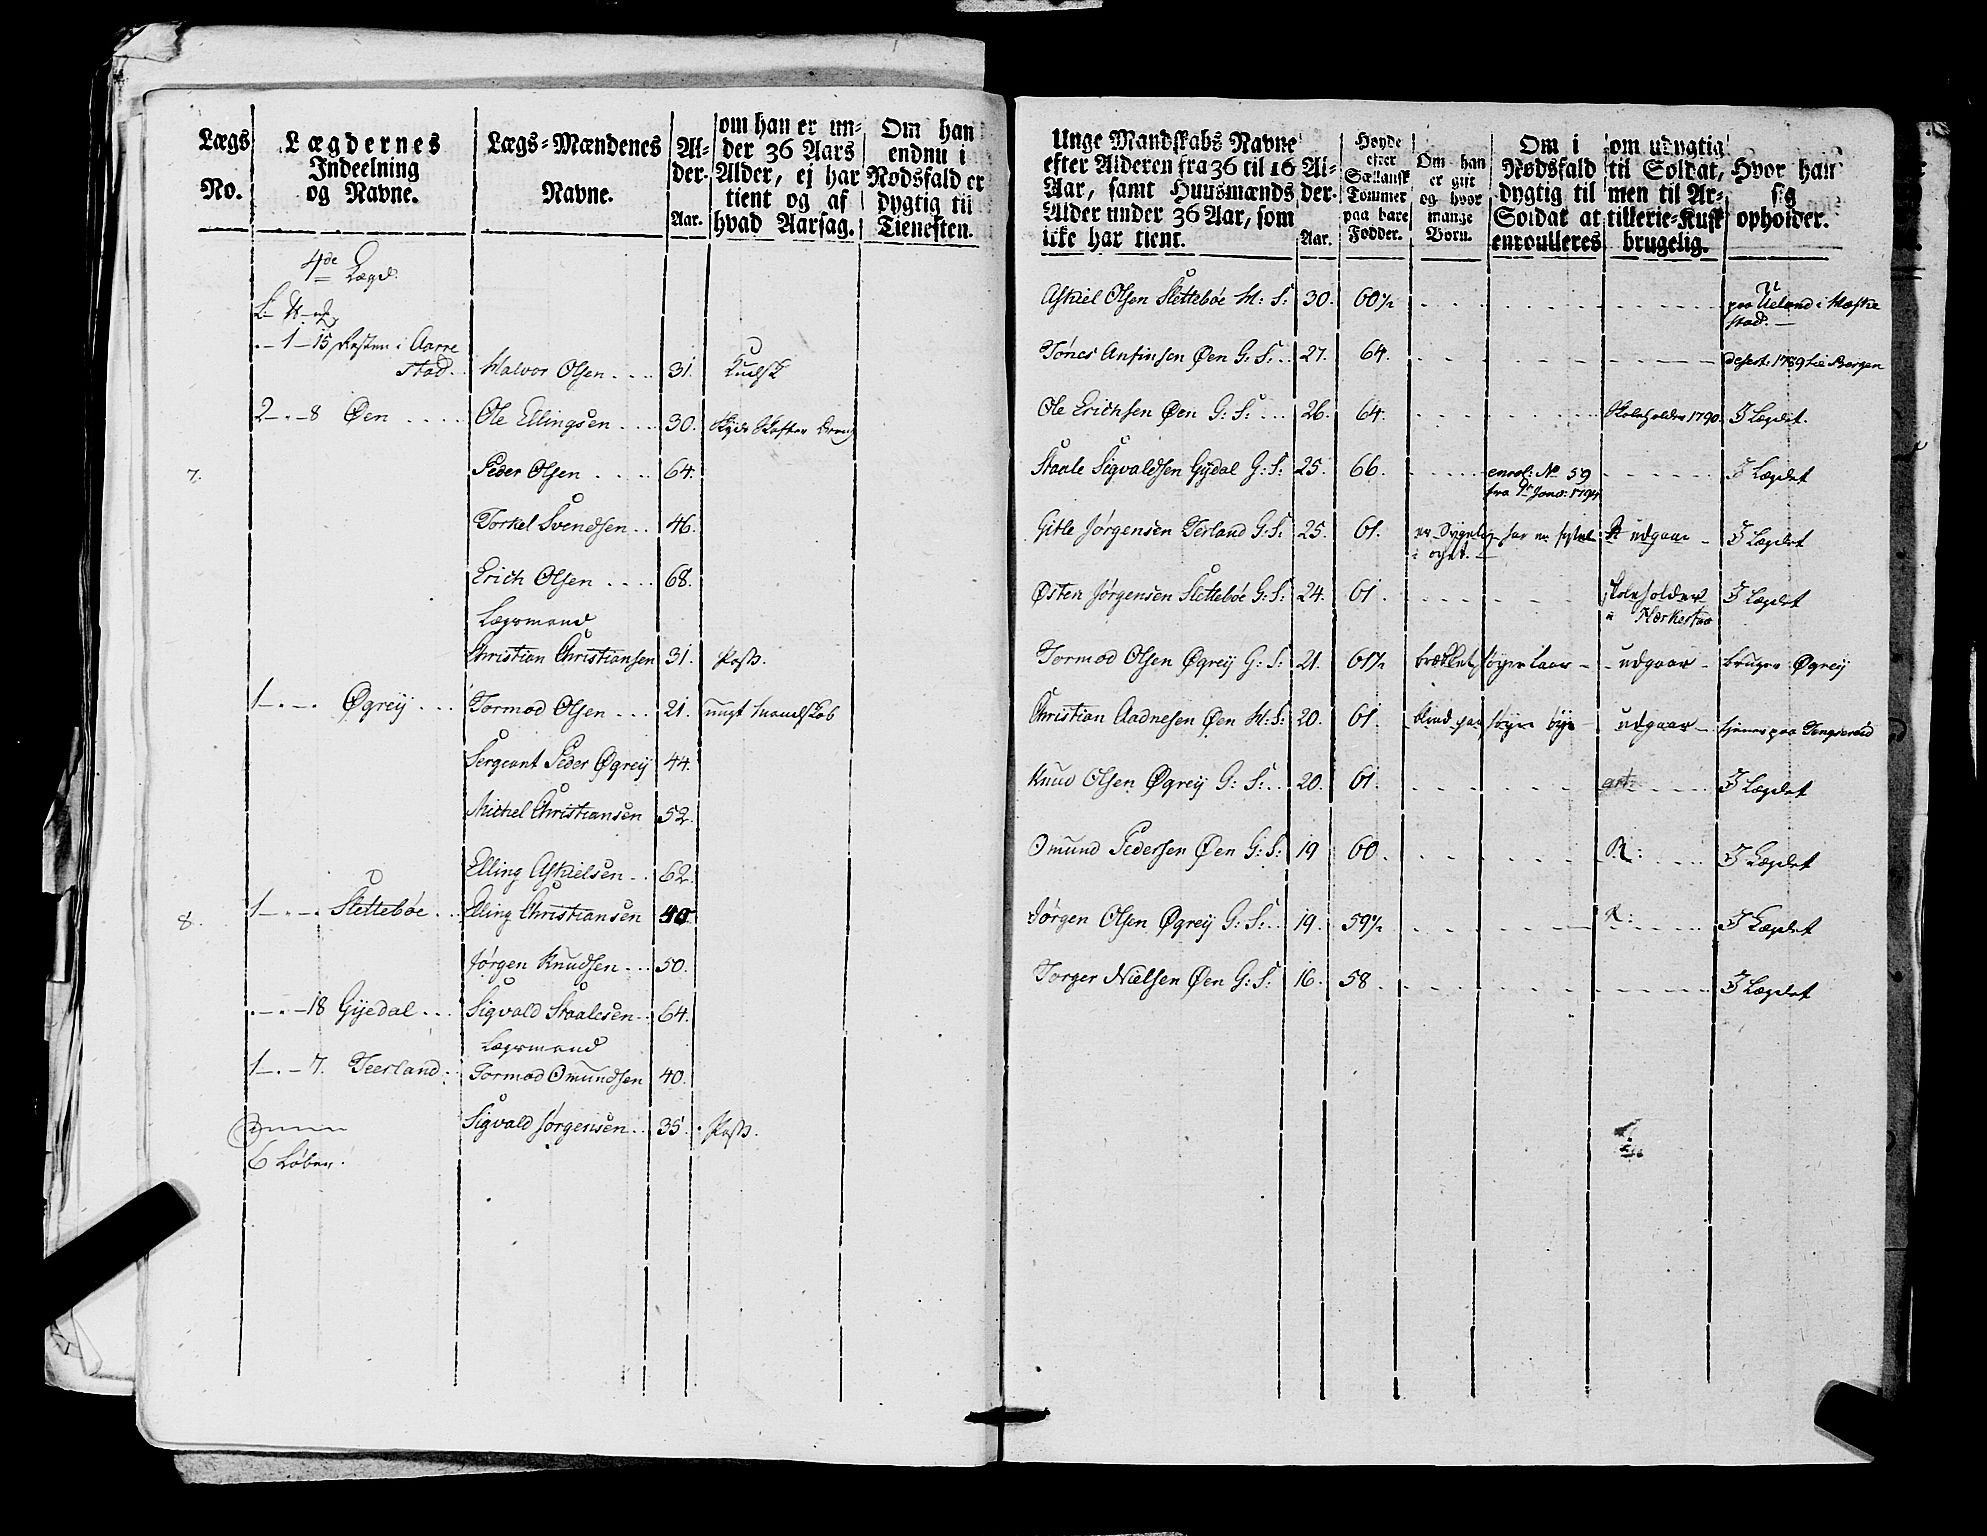 Lægs No.
Lægdernes Indeelning og Navne.
Lægs-Mændenes Navne.
Alder. Aar.
om han er under 36 Aars Alder, ej har tient og af hvad Aarsag.
Om han endnu i Nødsfald er dygtig til Tienesten.
4de Lægd.
1 - 15 Resten i Aarrestad. Halvor Olsen 31. Kudsk
2 - 8 Øen Ole Ellingsen 30.
7. Peder Olsen 64.
Torkel Svendsen 46.
Erich Olsen 68.
Lægsmand
Christian Christiansen 31. Post.
1 - Øgreÿ Tormod Olsen 21. ungt Mandskab
Sergeant Peder Øgreÿ 44.
Michel Christiansen 52.
Elling Askielsen 62.
8. 1 - Slettebøe Elling Christiansen 40
Jørgen Knudsen 50.
18 Gÿedal Sigvald Staalesen 64.
Lægsmand
1 - 7. Teerland Tormod Omundsen 40.
Sigvald Jørgensen 35. Post.
6 Løber.
Unge Mandskabs Navne efter Alderen fra 36 til 16 Aar, samt Huusmænds Alder under 36 Aar, som icke har tient.
Alder. Aar.
Høyde efter Siællansk Tommer paa bare Fødder.
Om han er gift og hvor mange Børn.
Om i Nødsfald dygtig til Soldat at enroulleres
om udygtig til Soldat, men til Artillerie-Kusk brugelig.
Hvor han sig opholder.
Askiel Olsen Slettebøe H: S: 30. 60½ paa Ueland i Hæskestad.
Tønes Anfinsen Øen G: S: 27. 64. desert: 1789 til Bergen
Ole Erichsen Øen G: S: 26. 64. Skoleholder 1790. I Lægdet.
Staale Sigvaldsen Gÿdal G: S: 25. 66. enrol: No 59 I Lægdet
Gitle Jørgensen Terland G: S: 25. 61. udgaar I Lægdet
Østen Jørgensen Slettebøe G: S: 24. 61. Skoleholder I Lægdet
Tormod Olsen Øgreÿ G: S: 21. 61½ brækket høyre Laar udgaar bruger Øgreÿ
Christian Aadnesen Øen H: S: 20. 61. blind paa høyre øye udgaar tiener paa Tengsereid
Knud Olsen Øgreÿ G: S: 20. 61. art: I Lægdet
Omund Pedersen Øen G: S: 19 60. R: I Lægdet
Jørgen Olsen Øgreÿ G: S: 19. 59½ R: I Lægdet
Torger Nielsen Øen G: S: 16. 58. I Lægdet